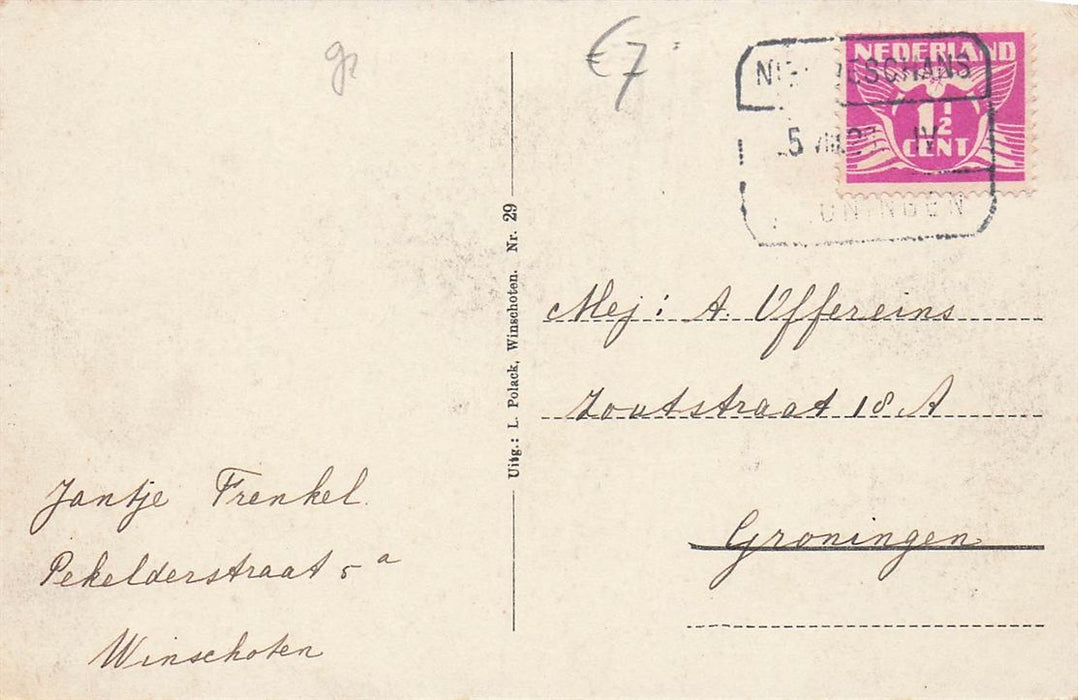 gr
€7
NEDERLAND
1 1/2
CENT
IV
Uitg.: L. Polack, Winschoten. Nr. 29
Mej: A. Uffereins
Zoutstraat 18 A
Groningen
Jantje Frenkel.
Pekelderstraat 5 a
Winschoten